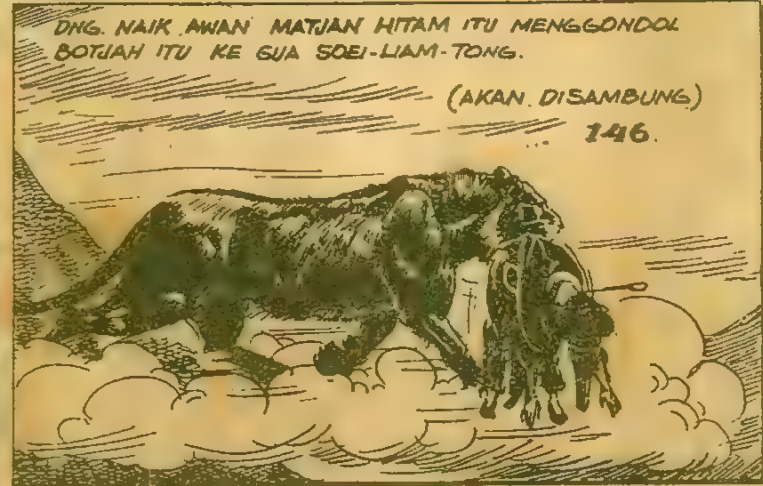 DNG. NAIK AWAN MATJAN HITAM ITU MENGGONDOL
BOTJAH ITU KE GUA SOEI-LIAM-TONG.
(AKAN DISAMBUNG)
146.